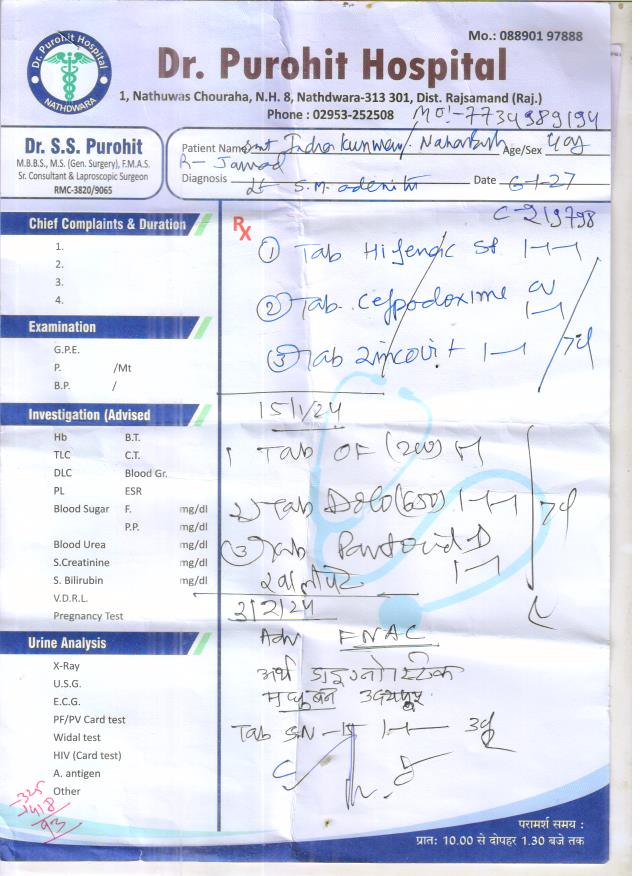 Mo.: 088901 97888
Dr. Purohit Hospital
NATHDWARA
Dr. Purohit Hospital
1, Nathuwas Chouraha, N.H. 8, Nathdwara-313 301, Dist. Rajsamand (Raj.)
Phone : 02953-252508
Mo!-7734989194
Dr. S.S. Purohit
M.B.B.S., M.S. (Gen. Surgery), F.M.A.S.
Sr. Consultant & Laproscopic Surgeon
RMC-3820/9065
Patient Name Smt Indra kunwar Age/Sex 40y
Diagnosis Lt S.M. adenitis Date
C-219798
Chief Complaints & Duration
1.
2.
3.
4.
Examination
G.P.E.
P. /Mt
B.P. /
Investigation (Advised
Hb B.T.
TLC C.T.
DLC Blood Gr.
PL ESR
Blood Sugar F. mg/dl
P.P. mg/dl
Blood Urea mg/dl
S.Creatinine mg/dl
S. Bilirubin mg/dl
V.D.R.L.
Pregnancy Test
Urine Analysis
X-Ray
U.S.G.
E.C.G.
PF/PV Card test
Widal test
HIV (Card test)
A. antigen
Other
Rx
① Tab Hifenac
② Tab. Cefpodoxime CV
③ Tab Zincovit
15/1/24
1 Tab OF (200)
2) Tab Dolo (650)
③ Tab Pantocid D
खाली पेट
3/2/24
Adv FNAC
अर्थ डाइग्नोस्टिक
मधुबन उदयपुर
Tab
-325
-418
93
परामर्श समय :
प्रात: 10.00 से दोपहर 1.30 बजे तक